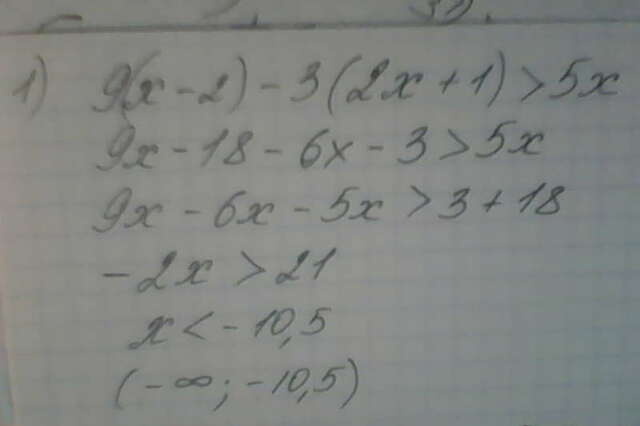 1) 9(x-2)-3(2x+1)>5x
9x-18-6x-3>5x
9x-6x-5x>3+18
-2x>21
x<-10,5
(-∞;-10,5)